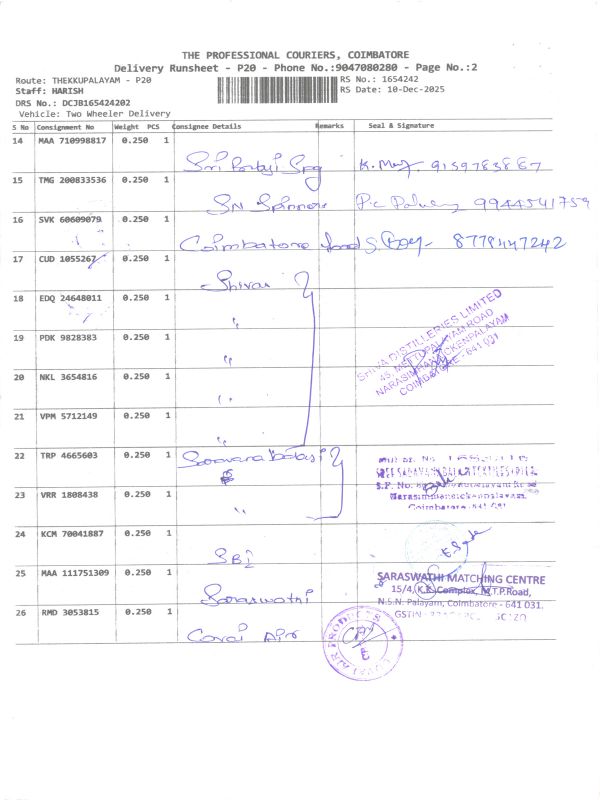 THE PROFESSIONAL COURIERS, COIMBATORE
Delivery Runsheet - P20 - Phone No.:9047080280 - Page No.:2
Route: THEKKUPALAYAM - P20
RS No.: 1654242
Staff: HARISH
RS Date: 10-Dec-2025
DRS No.: DCJB165424202
Vehicle: Two Wheeler Delivery
S No Consignment No Weight PCS Consignee Details Remarks Seal & Signature
14 MAA 710998817 0.250 1
Sri Balaji Spg 9159783887
15 TMG 200833536 0.250 1
Sri Spinners 9944541759
16 SVK 60609079 0.250 1
Coimbatore food 8778447242
17 CUD 1055267 0.250 1
Shiva
18 EDQ 24648011 0.250 1
"
SHIVA DISTILLERIES LIMITED
45, METTUPALAYAM ROAD
NARASIMHANAICKENPALAYAM
COIMBATORE - 641 031
19 PDK 9828383 0.250 1
"
20 NKL 3654816 0.250 1
"
21 VPM 5712149 0.250 1
"
22 TRP 4665603 0.250 1
Saravana Balaji
23 VRR 1808438 0.250 1
"
Narasimmanaickenpalayam,
Coimbatore - 641 031
24 KCM 70041887 0.250 1
SBI
25 MAA 111751309 0.250 1
Saraswathi
SARASWATHI MATCHING CENTRE
15/4, K.K. Complex, M.T.P.Road,
N.S.N. Palayam, Coimbatore - 641 031.
GSTIN
26 RMD 3053815 0.250 1
Covai Air
AIR PRODUCTS